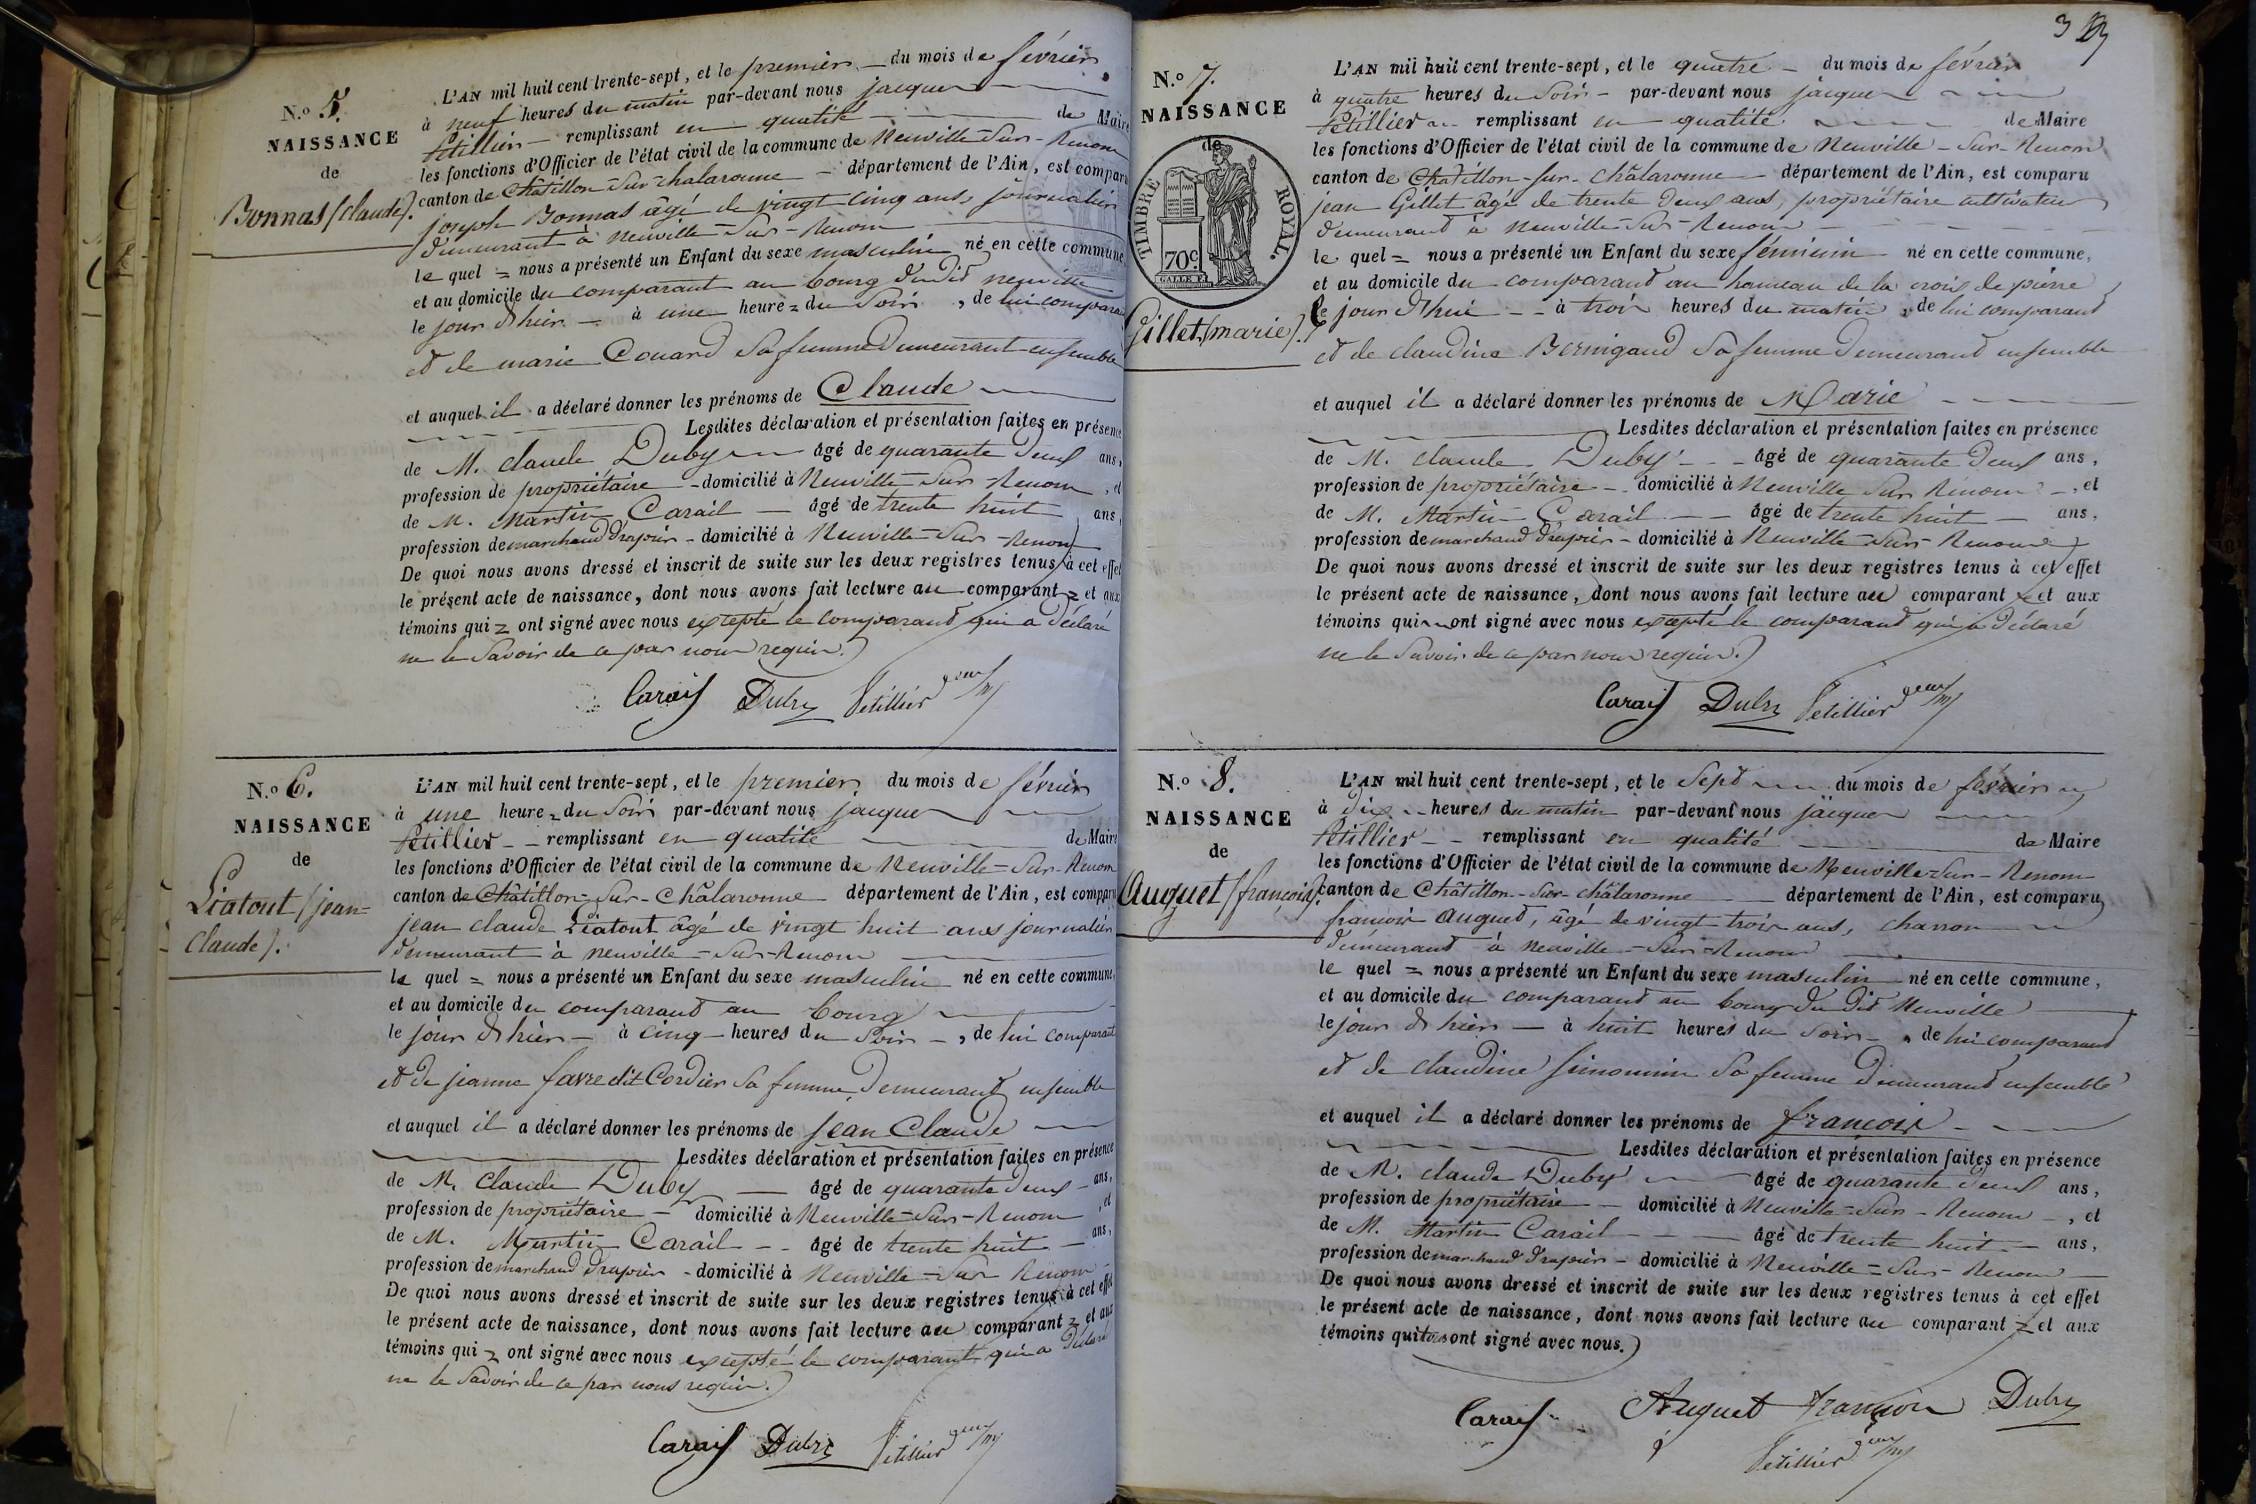 N.o 5.
NAISSANCE
de
Bonnas (claude).
L'AN mil huit cent trente-sept, et le premier du mois de février
à neuf heures du matin par-devant nous jacques
Petillier remplissant en qualité de Maire
les fonctions d'Officier de l'état civil de la commune de Neuville-Sur-Renom
canton de Châtillon-Sur-chalaronne département de l'Ain, est comparu
joseph Bonnas âgé de vingt cinq ans, journalier
demeurant à Neuville-Sur-Renom
le quel = nous a présenté un Enfant du sexe masculin né en cette commune,
et au domicile du comparant au bourg dudit neuville
le jour d'hier à une heure = du Soir, de lui comparant
et de marie Couard Sa femme Demeurant ensemble
et auquel il a déclaré donner les prénoms de Claude
Lesdites déclaration et présentation faites en présence
de M. claude Duby âgé de quarante Deux ans,
profession de propriétaire domicilié à Neuville-Sur Renom, et
de M. Martin Carail âgé de trente huit ans,
profession de marchand Drapier domicilié à Neuville-Sur-Renom
De quoi nous avons dressé et inscrit de suite sur les deux registres tenus à cet effet
le présent acte de naissance, dont nous avons fait lecture au comparant et aux
témoins qui ont signé avec nous excepté le comparant qui a Déclaré
ne le Savoir de ce par nous requis.)
Carail Duby Petillier
N.o 6.
NAISSANCE
de
Liatout (jean-
claude).
L'AN mil huit cent trente-sept, et le premier du mois de février
à une heure du Soir par-devant nous jacques
Petillier remplissant en qualité de Maire
les fonctions d'Officier de l'état civil de la commune de Neuville-Sur-Renom
canton de Châtillon-Sur-Châlaronne département de l'Ain, est comparu
jean claude Liatout âgé de vingt huit ans journalier
demeurant à neuville-Sur-Renom
le quel = nous a présenté un Enfant du sexe masculin né en cette commune,
et au domicile du comparant au bourg
le jour d'hier à cinq heures du Soir, de lui comparant
et de jeanne favre dit Cordier Sa femme, Demeurant ensemble
et auquel il a déclaré donner les prénoms de jean Claude
Lesdites déclaration et présentation faites en présence
de M. Claude Duby âgé de quarante Deux ans,
profession de propriétaire domicilié à Neuville-Sur-Renom, et
de M. Martin Carail âgé de trente huit ans,
profession de marchand Drapier domicilié à Neuville-Sur Renom
De quoi nous avons dressé et inscrit de suite sur les deux registres tenus à cet effet
le présent acte de naissance, dont nous avons fait lecture au comparant et aux
témoins qui ont signé avec nous excepté le comparant qui a Déclaré
ne le Savoir de ce par nous requis.)
Carail Duby Petillier
3
N.o 7.
NAISSANCE
de
TIMBRE ROYAL.
70c.
Gillet (marie).
L'AN mil huit cent trente-sept, et le quatre du mois de février
à quatre heures du Soir par-devant nous jacques
Petillier remplissant en qualité de Maire
les fonctions d'Officier de l'état civil de la commune de Neuville-Sur-Renom
canton de Châtillon-Sur-Châlaronne département de l'Ain, est comparu
jean Gillet âgé de trente Deux ans, propriétaire cultivateur
demeurant à Neuville-Sur-Renom
le quel = nous a présenté un Enfant du sexe féminin né en cette commune,
et au domicile du comparant au hameau de la croix de pierre
Le jour d'hui à trois heures du matin, de lui comparant
et de claudine Bernigaud Sa femme Demeurant ensemble
et auquel il a déclaré donner les prénoms de Marie
Lesdites déclaration et présentation faites en présence
de M. claude Duby âgé de quarante Deux ans,
profession de propriétaire domicilié à Neuville Sur Renom, et
de M. Martin Carail âgé de trente huit ans,
profession de marchand Drapier domicilié à Neuville-Sur-Renom
De quoi nous avons dressé et inscrit de suite sur les deux registres tenus à cet effet
le présent acte de naissance, dont nous avons fait lecture au comparant et aux
témoins qui ont signé avec nous excepté le comparant qui a Déclaré
ne le Savoir de ce par nous requis.)
Carail Duby Petillier
N.o 8.
NAISSANCE
de
Auguet (françois).
L'AN mil huit cent trente-sept, et le Sept du mois de février
à dix heures du matin par-devant nous jacques
Petillier remplissant en qualité de Maire
les fonctions d'Officier de l'état civil de la commune de Neuville-Sur-Renom
canton de Châtillon-Sur-châlaronne département de l'Ain, est comparu
françois Auguet, âgé de vingt trois ans, charron
demeurant à Neuville-Sur-Renom
le quel = nous a présenté un Enfant du sexe masculin né en cette commune,
et au domicile du comparant au bourg du dit Neuville
le jour d'hier à huit heures du Soir, de lui comparant
et de claudine Simonnin Sa femme Demeurant ensemble
et auquel il a déclaré donner les prénoms de françois
Lesdites déclaration et présentation faites en présence
de M. claude Duby âgé de quarante Deux ans,
profession de propriétaire domicilié à Neuville-Sur-Renom, et
de M. Martin Carail âgé de trente huit ans,
profession de marchand Drapier domicilié à Neuville-Sur-Renom
De quoi nous avons dressé et inscrit de suite sur les deux registres tenus à cet effet
le présent acte de naissance, dont nous avons fait lecture au comparant et aux
témoins qui tous ont signé avec nous.)
Carail Auguet françois Duby
Petillier